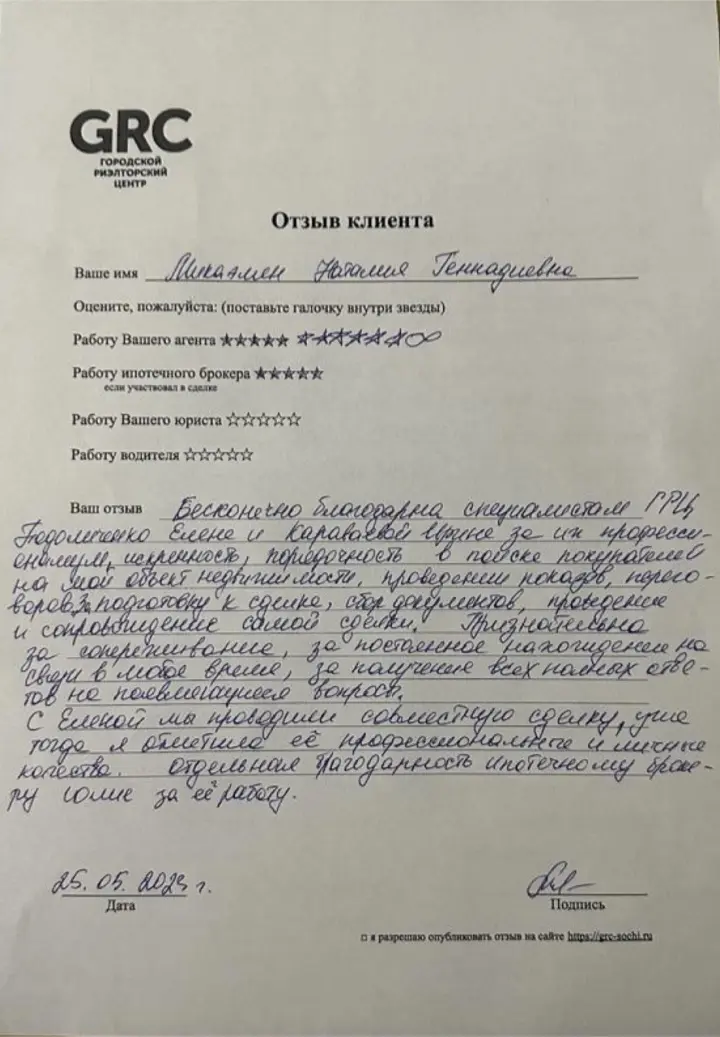 GRC
ГОРОДСКОЙ
РИЭЛТОРСКИЙ
ЦЕНТР
Отзыв клиента
Ваше имя Микаэлмен Наталия Геннадиевна
Оцените, пожалуйста: (поставьте галочку внутри звезды)
Работу Вашего агента ★★★★★ ★★★★★★∞
Работу ипотечного брокера ★★★★★
если участвовал в сделке
Работу Вашего юриста ☆☆☆☆☆
Работу водителя ☆☆☆☆☆
Ваш отзыв Бесконечно благодарна специалистам ГРЦ
Елене и Караваевой Ирине за их професси-
онализм, искренность, порядочность в поиске покупателей
на мой объект недвижимости, проведении показов, перего-
воров. За подготовку к сделке, сбор документов, проведение
и сопровождение самой сделки. Признательна
за сопереживание, за постоянное нахождение на
связи в любое время, за получение всех полных отве-
тов на появляющиеся вопросы.
С Еленой мы проводили совместную сделку, уже
тогда я отметила её профессиональные и личные
качества. Отдельная благодарность ипотечному броке-
ру Юлие за её работу.
25.05.2023 г.
Дата
Подпись
□ я разрешаю опубликовать отзыв на сайте https://grc-sochi.ru